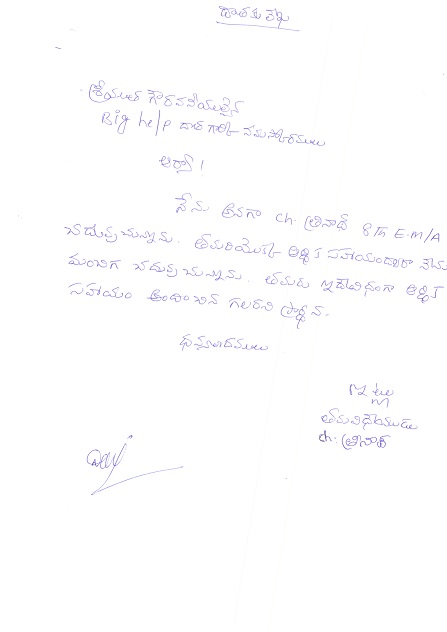 దాతకు లేఖ
శ్రీయుత గౌరవనీయులైన
Big help దాత గార్కి నమస్కారములు
ఆర్యా!
నేను అనగా ch. త్రినాథ్ 8th E.M/A
చదువుచున్నాను. తమరియొక్క ఆర్థిక సహాయం ద్వారా నేను
మంచిగ చదువుచున్నాను. తమరు ఇదేవిధంగా ఆర్థిక
సహాయం అందించ గలరని ప్రార్థన.
ధన్యవాదములు
ఇట్లు
తమ విధేయుడు
ch. త్రినాథ్